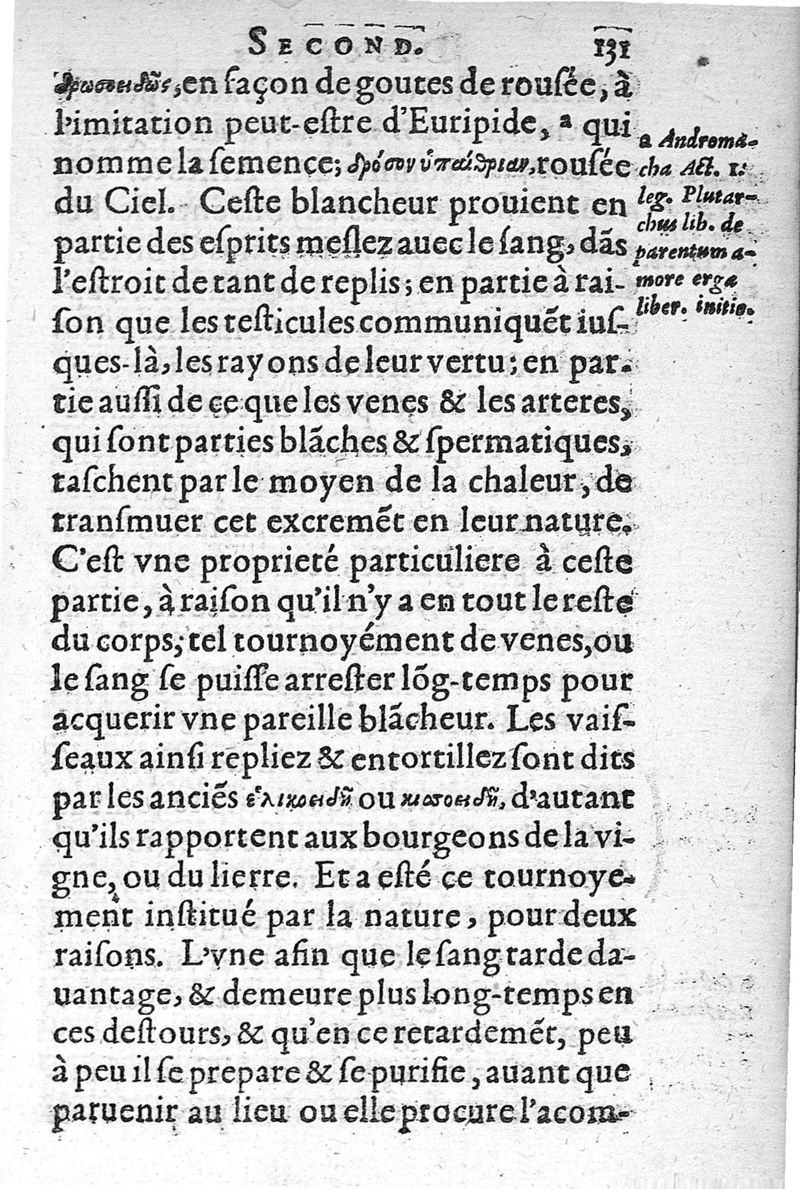 SECOND. 131
δροσοειδῶς, en façon de goutes de rousée, à
l'imitation peut-estre d'Euripide, ª qui
nomme la semence; δρόσον ὑπαίθριαν, rousée
du Ciel. Ceste blancheur prouient en
partie des esprits meslez auec le sang, dãs
l'estroit de tant de replis; en partie à rai-
son que les testicules communiquẽt ius-
ques-là, les rayons de leur vertu; en par-
tie aussi de ce que les venes & les arteres,
qui sont parties blãches & spermatiques,
taschent par le moyen de la chaleur, de
transmuer cet excremẽt en leur nature.
C'est vne proprieté particuliere à ceste
partie, à raison qu'il n'y a en tout le reste
du corps, tel tournoyément de venes, ou
le sang se puisse arrester lõg-temps pour
acquerir vne pareille blãcheur. Les vais-
seaux ainsi repliez & entortillez sont dits
par les anciẽs ἑλικοειδῆ ou κισσοειδῆ, d'autant
qu'ils rapportent aux bourgeons de la vi-
gne, ou du lierre. Et a esté ce tournoye-
ment institué par la nature, pour deux
raisons. L'vne afin que le sang tarde da-
uantage, & demeure plus long-temps en
ces destours, & qu'en ce retardemẽt, peu
à peu il se prepare & se purifie, auant que
paruenir au lieu ou elle procure l'acom-
a Androma-
cha Act. 1.
leg. Plutar-
chus lib. de
parentum a-
more erga
liber. initio.